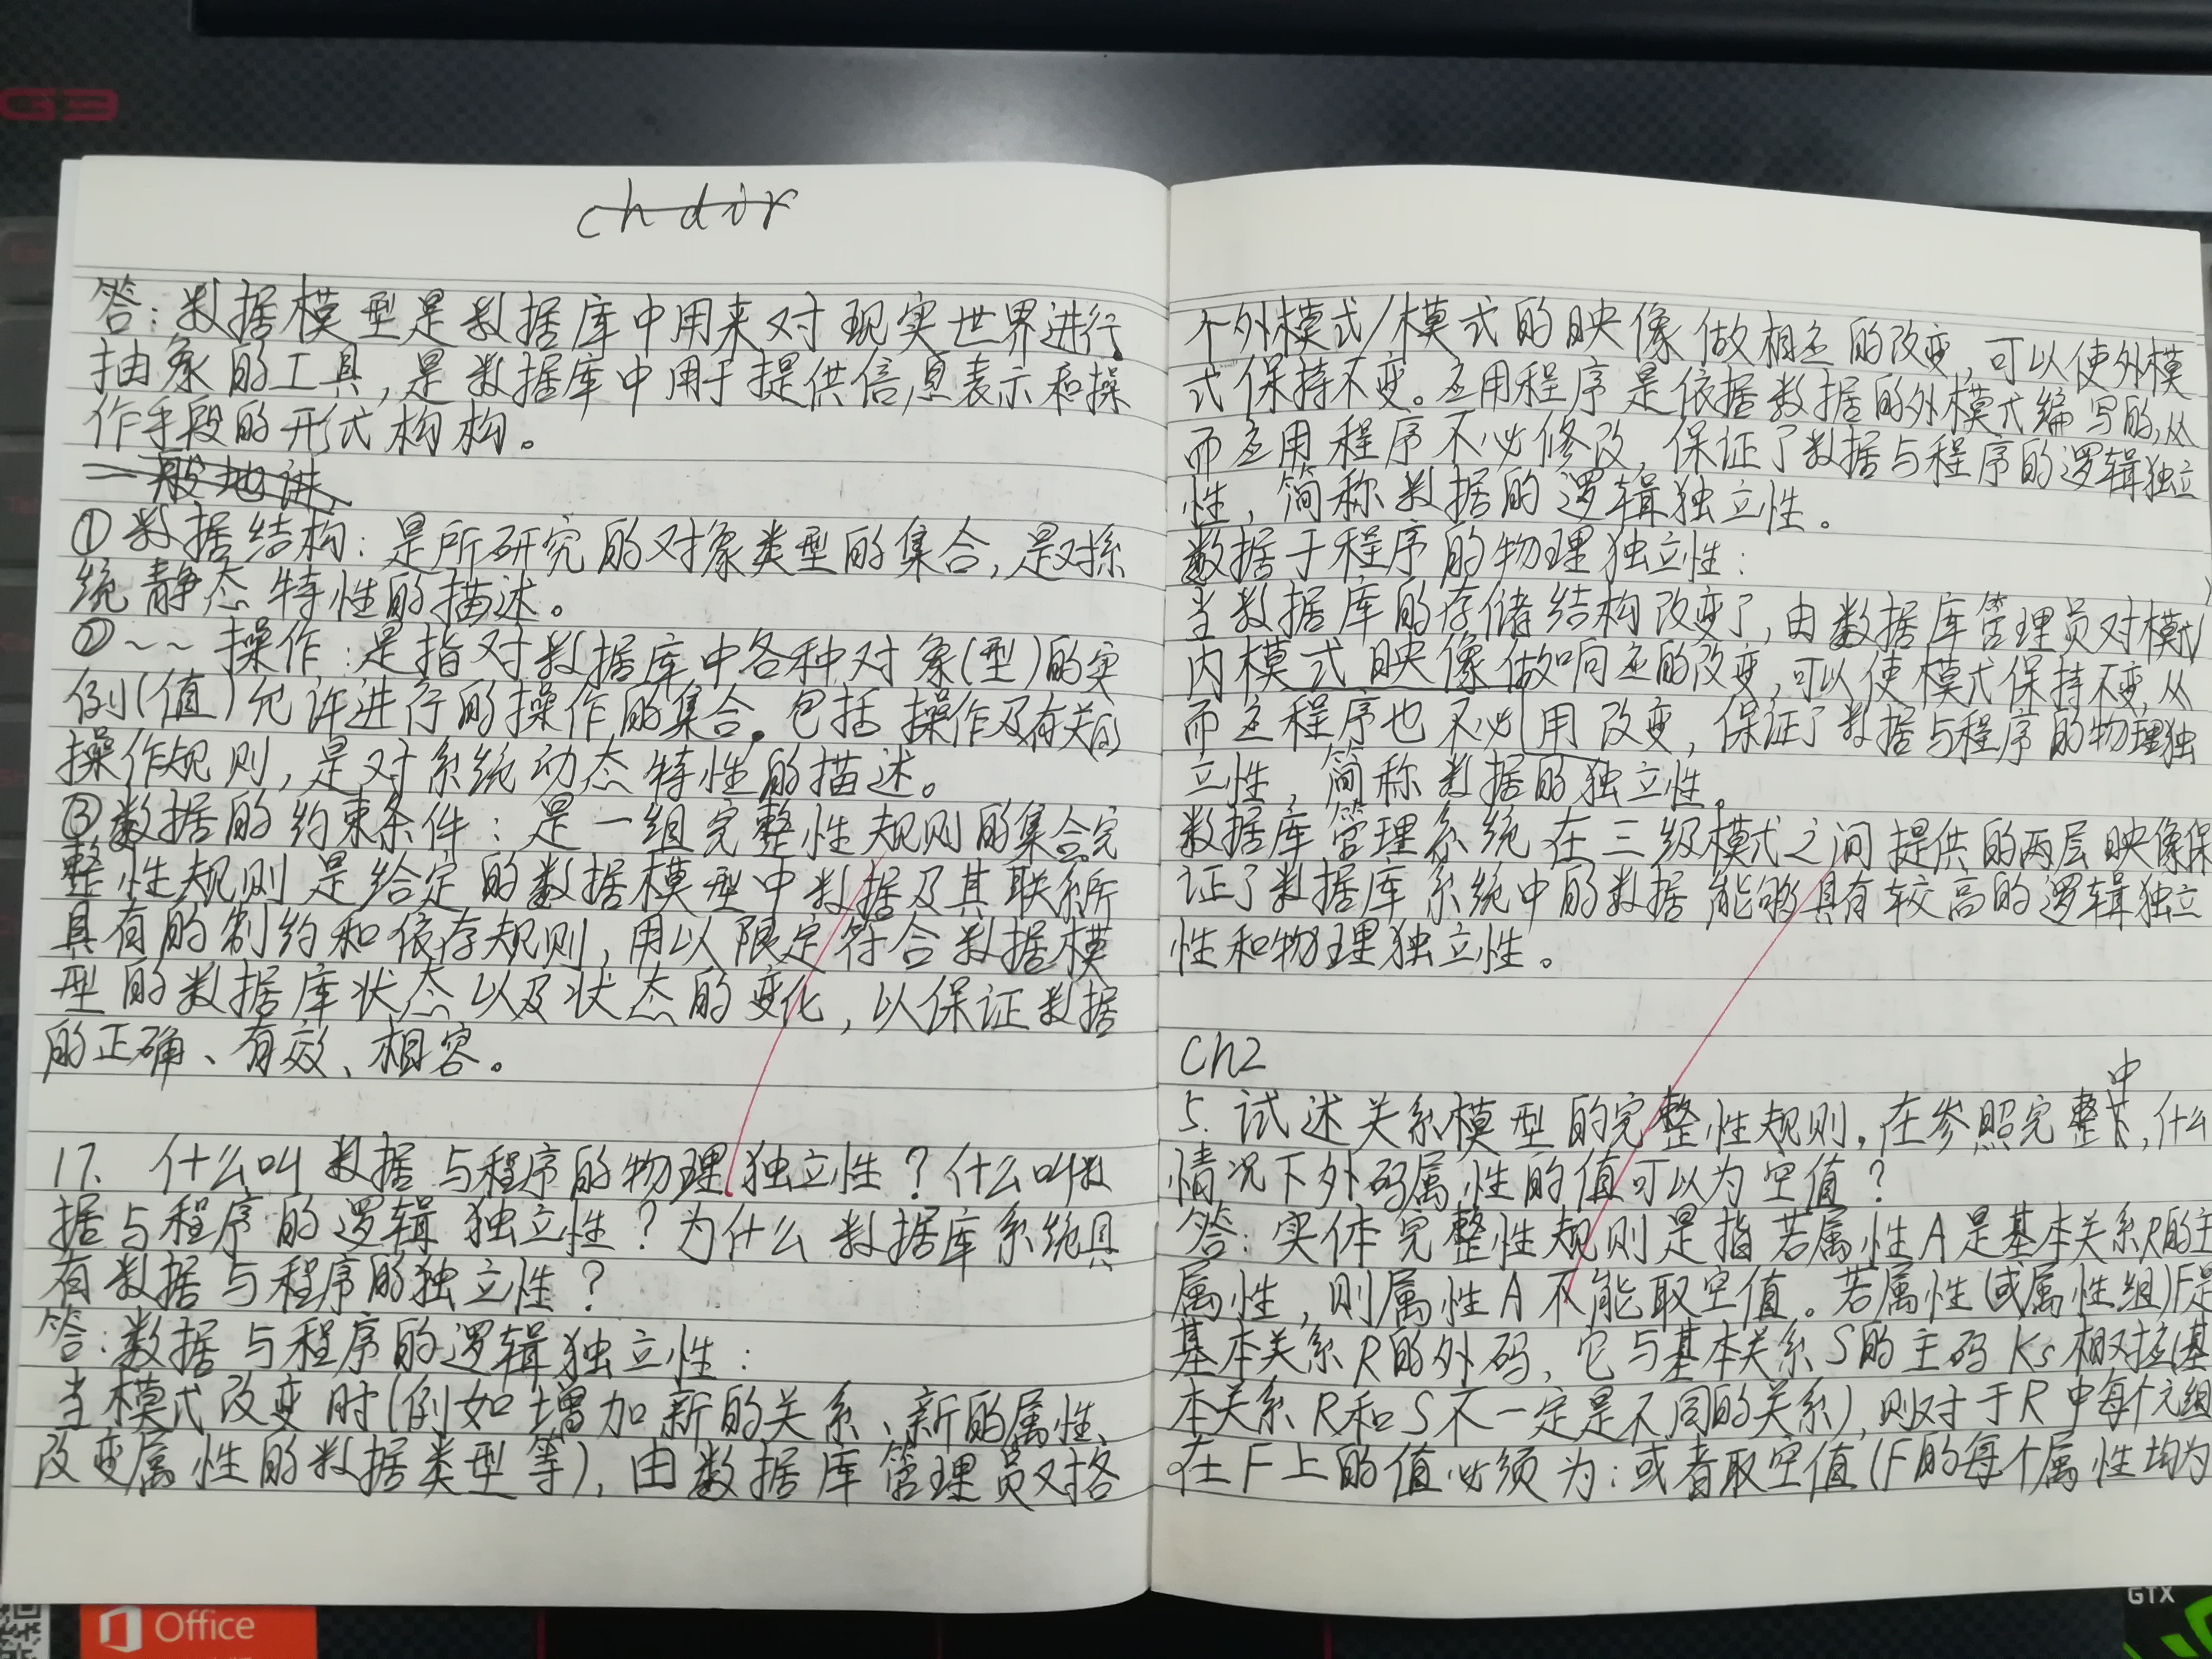 G3
chdir
答：数据模型是数据库中用来对现实世界进行
抽象的工具，是数据库中用于提供信息表示和操
作手段的形式构构。
一般地讲
①数据结构：是所研究的对象类型的集合，是对系
统静态特性的描述。
②～～操作：是指对数据库中各种对象(型)的实
例(值)允许进行的操作的集合。包括操作及有关的
操作规则，是对系统动态特性的描述。
③数据的约束条件：是一组完整性规则的集合完
整性规则是给定的数据模型中数据及其联系所
具有的制约和依存规则，用以限定符合数据模
型的数据库状态以及状态的变化，以保证数据
的正确、有效、相容。
17. 什么叫数据与程序的物理独立性？什么叫数
据与程序的逻辑独立性？为什么数据库系统具
有数据与程序的独立性？
答：数据与程序的逻辑独立性：
当模式改变时(例如增加新的关系、新的属性、
改变属性的数据类型等)，由数据库管理员对各
个外模式/模式的映像做相应的改变，可以使外模
式保持不变。应用程序是依据数据的外模式编写的，从
而应用程序不必修改，保证了数据与程序的逻辑独立
性，简称数据的逻辑独立性。
数据于程序的物理独立性：
当数据库的存储结构改变了，由数据库管理员对模式/
内模式映像做如向应的改变，可以使模式保持不变，从
而应程序也不必用改变，保证了数据与程序的物理独
立性，简称数据的独立性。
数据库管理系统在三级模式之间提供的两层映像保
证了数据库系统中的数据能够具有较高的逻辑独立
性和物理独立性。
Ch2
5. 试述关系模型的完整性规则。在参照完整中，什么
情况下外码属性的值可以为空值？
答：实体完整性规则是指若属性A是基本关系R的主
属性，则属性A不能取空值。若属性(或属性组)F是
基本关系R的外码，它与基本关系S的主码Ks相对应(基
本关系R和S不一定是不同的关系)，则对于R中每个元组
在F上的值必须为：或者取空值(F的每个属性均为
Office
GTX